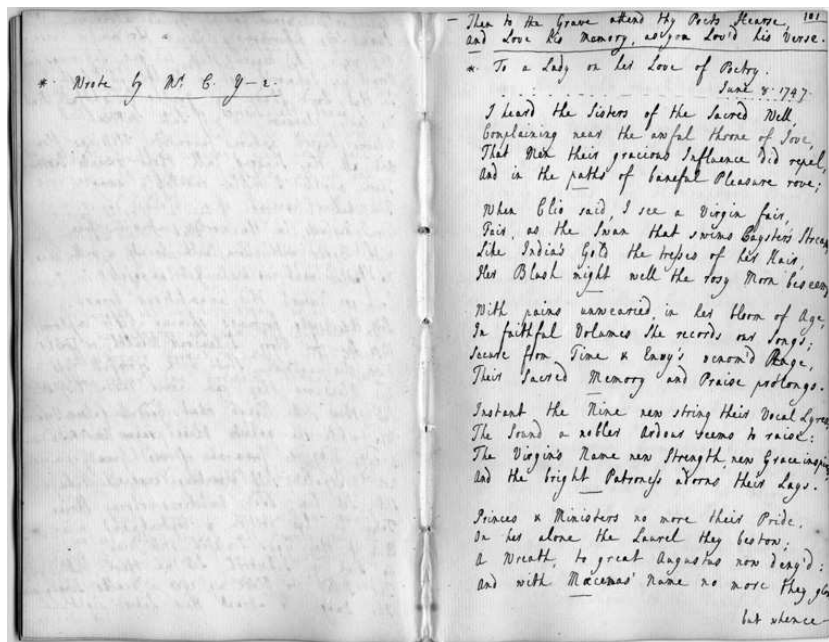 * Wrote by Mr. C. Y-e.
101
— Then to the Grave attend thy Poets Hearse,
and Love his Memory, as you Lov'd his Verse.
* To a Lady on her Love of Poetry.
June 8. 1747.
I heard the Sisters of the Sacred Well,
Complaining near the awful throne of Jove,
That Men their gracious Influence did repel,
And in the paths of baneful Pleasure rove;
When Clio said, I see a Virgin fair,
Fair, as the Swan that swims Cayster's Stream
Like India's Gold the tresses of her Hair,
Her Blush might well the rosy Morn beseem
With pains unwearied, in her bloom of Age,
In faithful Volumes she records our Songs;
Secure from Time & Envy's venom'd Rage,
Their Sacred Memory and Praise prolongs.
Instant the Nine new string their Vocal Lyres
The Sound a nobler Ardour seems to raise:
The Virgin's Name new Strength, new Grace inspi
And the bright Patroness adorns their Lays.
Princes & Ministers no more their Pride,
On her alone the Laurel they bestow;
A Wreath, to great Augustus now deny'd:
And with Mæcenas' Name no more they glo
but whence